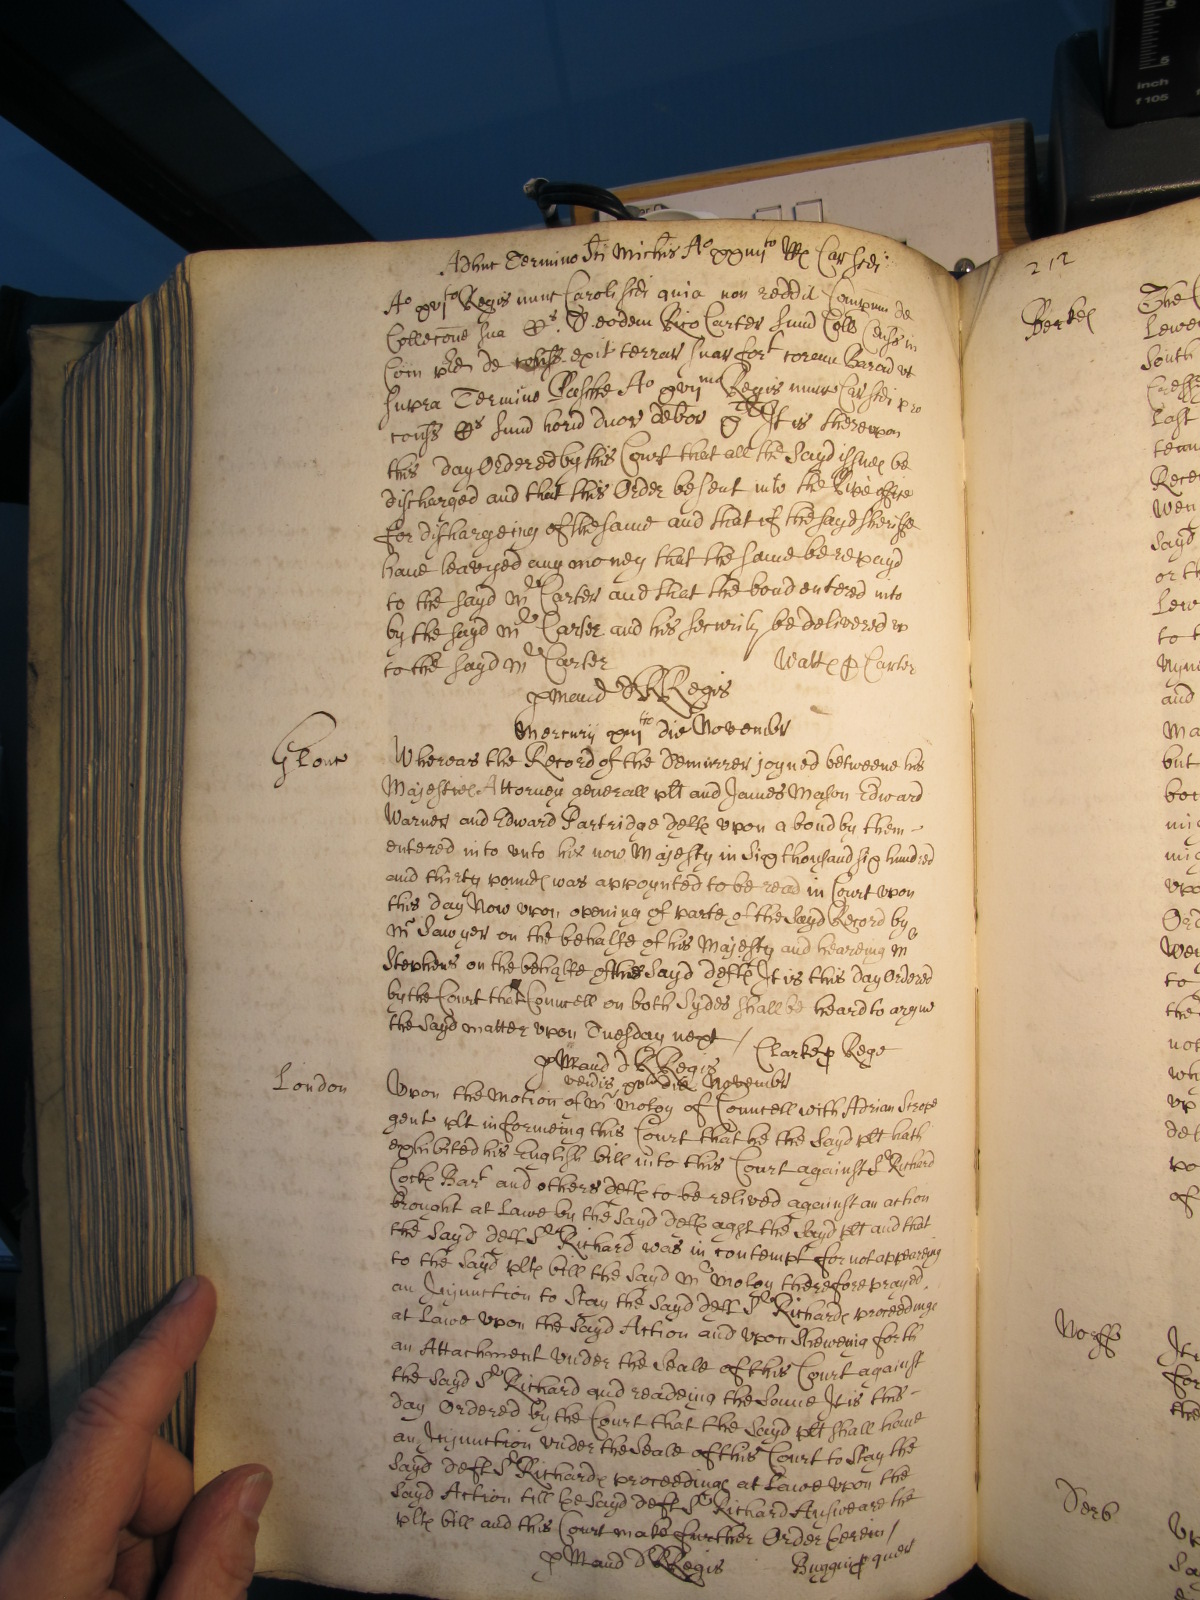 Adhuc Termino Sti Michis Ao xxiiijto Rs Car Scdi
Ao xvjto Regis nunc Caroli Scdi quia non reddid Compum de
Collecone sua &c. D eodem Rico Carter Super Coll
Com de exit terrar suar for coram Baron ut
supra Termino Pasche Ao xvijmo Regis nunc Car Scdi pro
&c duor It is thereupon
this day Ordered by this Court that all the Sayd issues be
discharged and that this Order be sent into the Pipe office
for dischargeing of the same and that if the sayd Sheriffe
have leavyed any money that the same be repayd
to the sayd Mr Carter and that the bond entered into
by the sayd Mr Carter and his security be delivered up
to the sayd Mr Carter Watts p Carter
p Mand R Regis
Mercurij xiijtio die Novembr
Glouc
Whereas the Record of the Demurrer joyned betweene his
Majesties Attorney generall plt and James Mason Edward
Warner and Edward Partridge defts upon a bond by them -
entered into unto his now Majesty in Six thousand six hundred
and thirty pounds was appoynted to be read in Court upon
this day Now upon opening of parte of the Sayd Record by
Mr Sawyer on the behalfe of his Majesty and heareing Mr
Stephens on the behalfe of the Sayd defts It is this day Ordered
by the Court that Councell on both Sydes shall be heard to argue
the Sayd matter upon Tuesday next / Clarke p Rege
p Mand R Regis
Venis xvto die Novembr
London
Upon the Motion of Mr Moloy of Councell with Adrian Scrope
gent plt informeing this Court that he the Sayd plt hath
exhibited his English bill into this Court against Sr Richard
Cocks Bart and others defts to be relived against an action
brought at Lawe by the Sayd defts agst the Sayd plt and that
the Sayd deft Sr Richard was in contempt for not appeareing
to the Sayd plts bill the Sayd Mr Moloy therefore prayed
an Injunction to Stay the Sayd deft Sr Richards proceedings
at Lawe upon the Sayd Action and upon Sheweing forth
an Attachment under the Seale of this Court against
the Sayd Sr Richard and readeing the Same It is this -
day Ordered by the Court that the Sayd plt shall have
an Injunction under the Seale of this Court to Stay the
Sayd deft Sr Richards proceedings at Lawe upon the
Sayd Action till the Sayd deft Sr Richard Answeare the
plts bill and this Court make further Order herein /
p Mand R Regis Buggin p quer
212
Berkes
The
Lewe
South
Last
Rece
Wen
Sayd
or th
Lew
to t
and
Ma
but
upo
Ord
Wer
to
the
not
wh
up
def
po
of
Norff
It i
for
the
Derb
Up
Sa